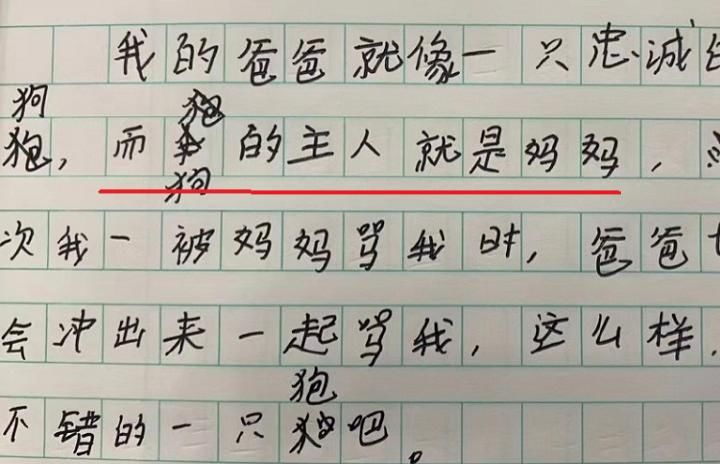 我的爸爸就像一只忠诚
狗
狍
狍,而的主人就是妈妈,
狗
次我一被妈妈骂我时,爸爸
会冲出来一起骂我,这么样,
狍
不错的一只吧。